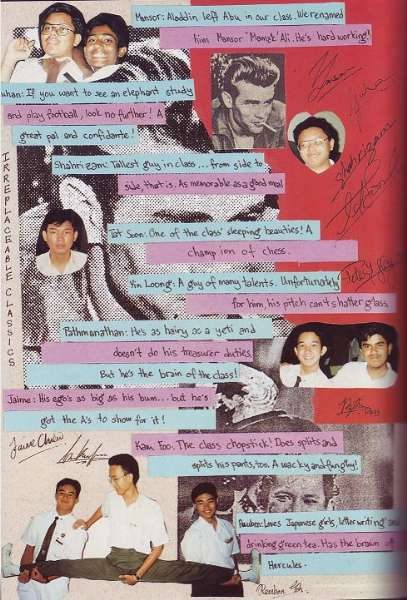 Mansor: Aladdin left Abu in our class. We renamed
him Mansor "Mamak" Ali. He's hard working!
uhan: If you want to see an elephant study
and play football, look no further! A
great pal and confidante!
Shahrizam: Tallest guy in class... from side to
side, that is. As memorable as a good meal
IRREPLACEABLE CLASSICS
Tat Soon: One of the class' sleeping beauties! A
champion of chess.
Yin Loong: A guy of many talents. Unfortunately
for him, his pitch can't shatter glass
Pathmanathan: He's as hairy as a yeti and
doesn't do his treasurer duties.
But he's the brain of the class!
Jaime: His ego's as big as his bum... but he's
got the A's to show for it!
Kam Foo: The class chopstick! Does splits and
splits his pants, too. A wacky and fun guy!
Reuben: Loves Japanese girls, letter writing and
drinking green tea. Has the brain of
Hercules.